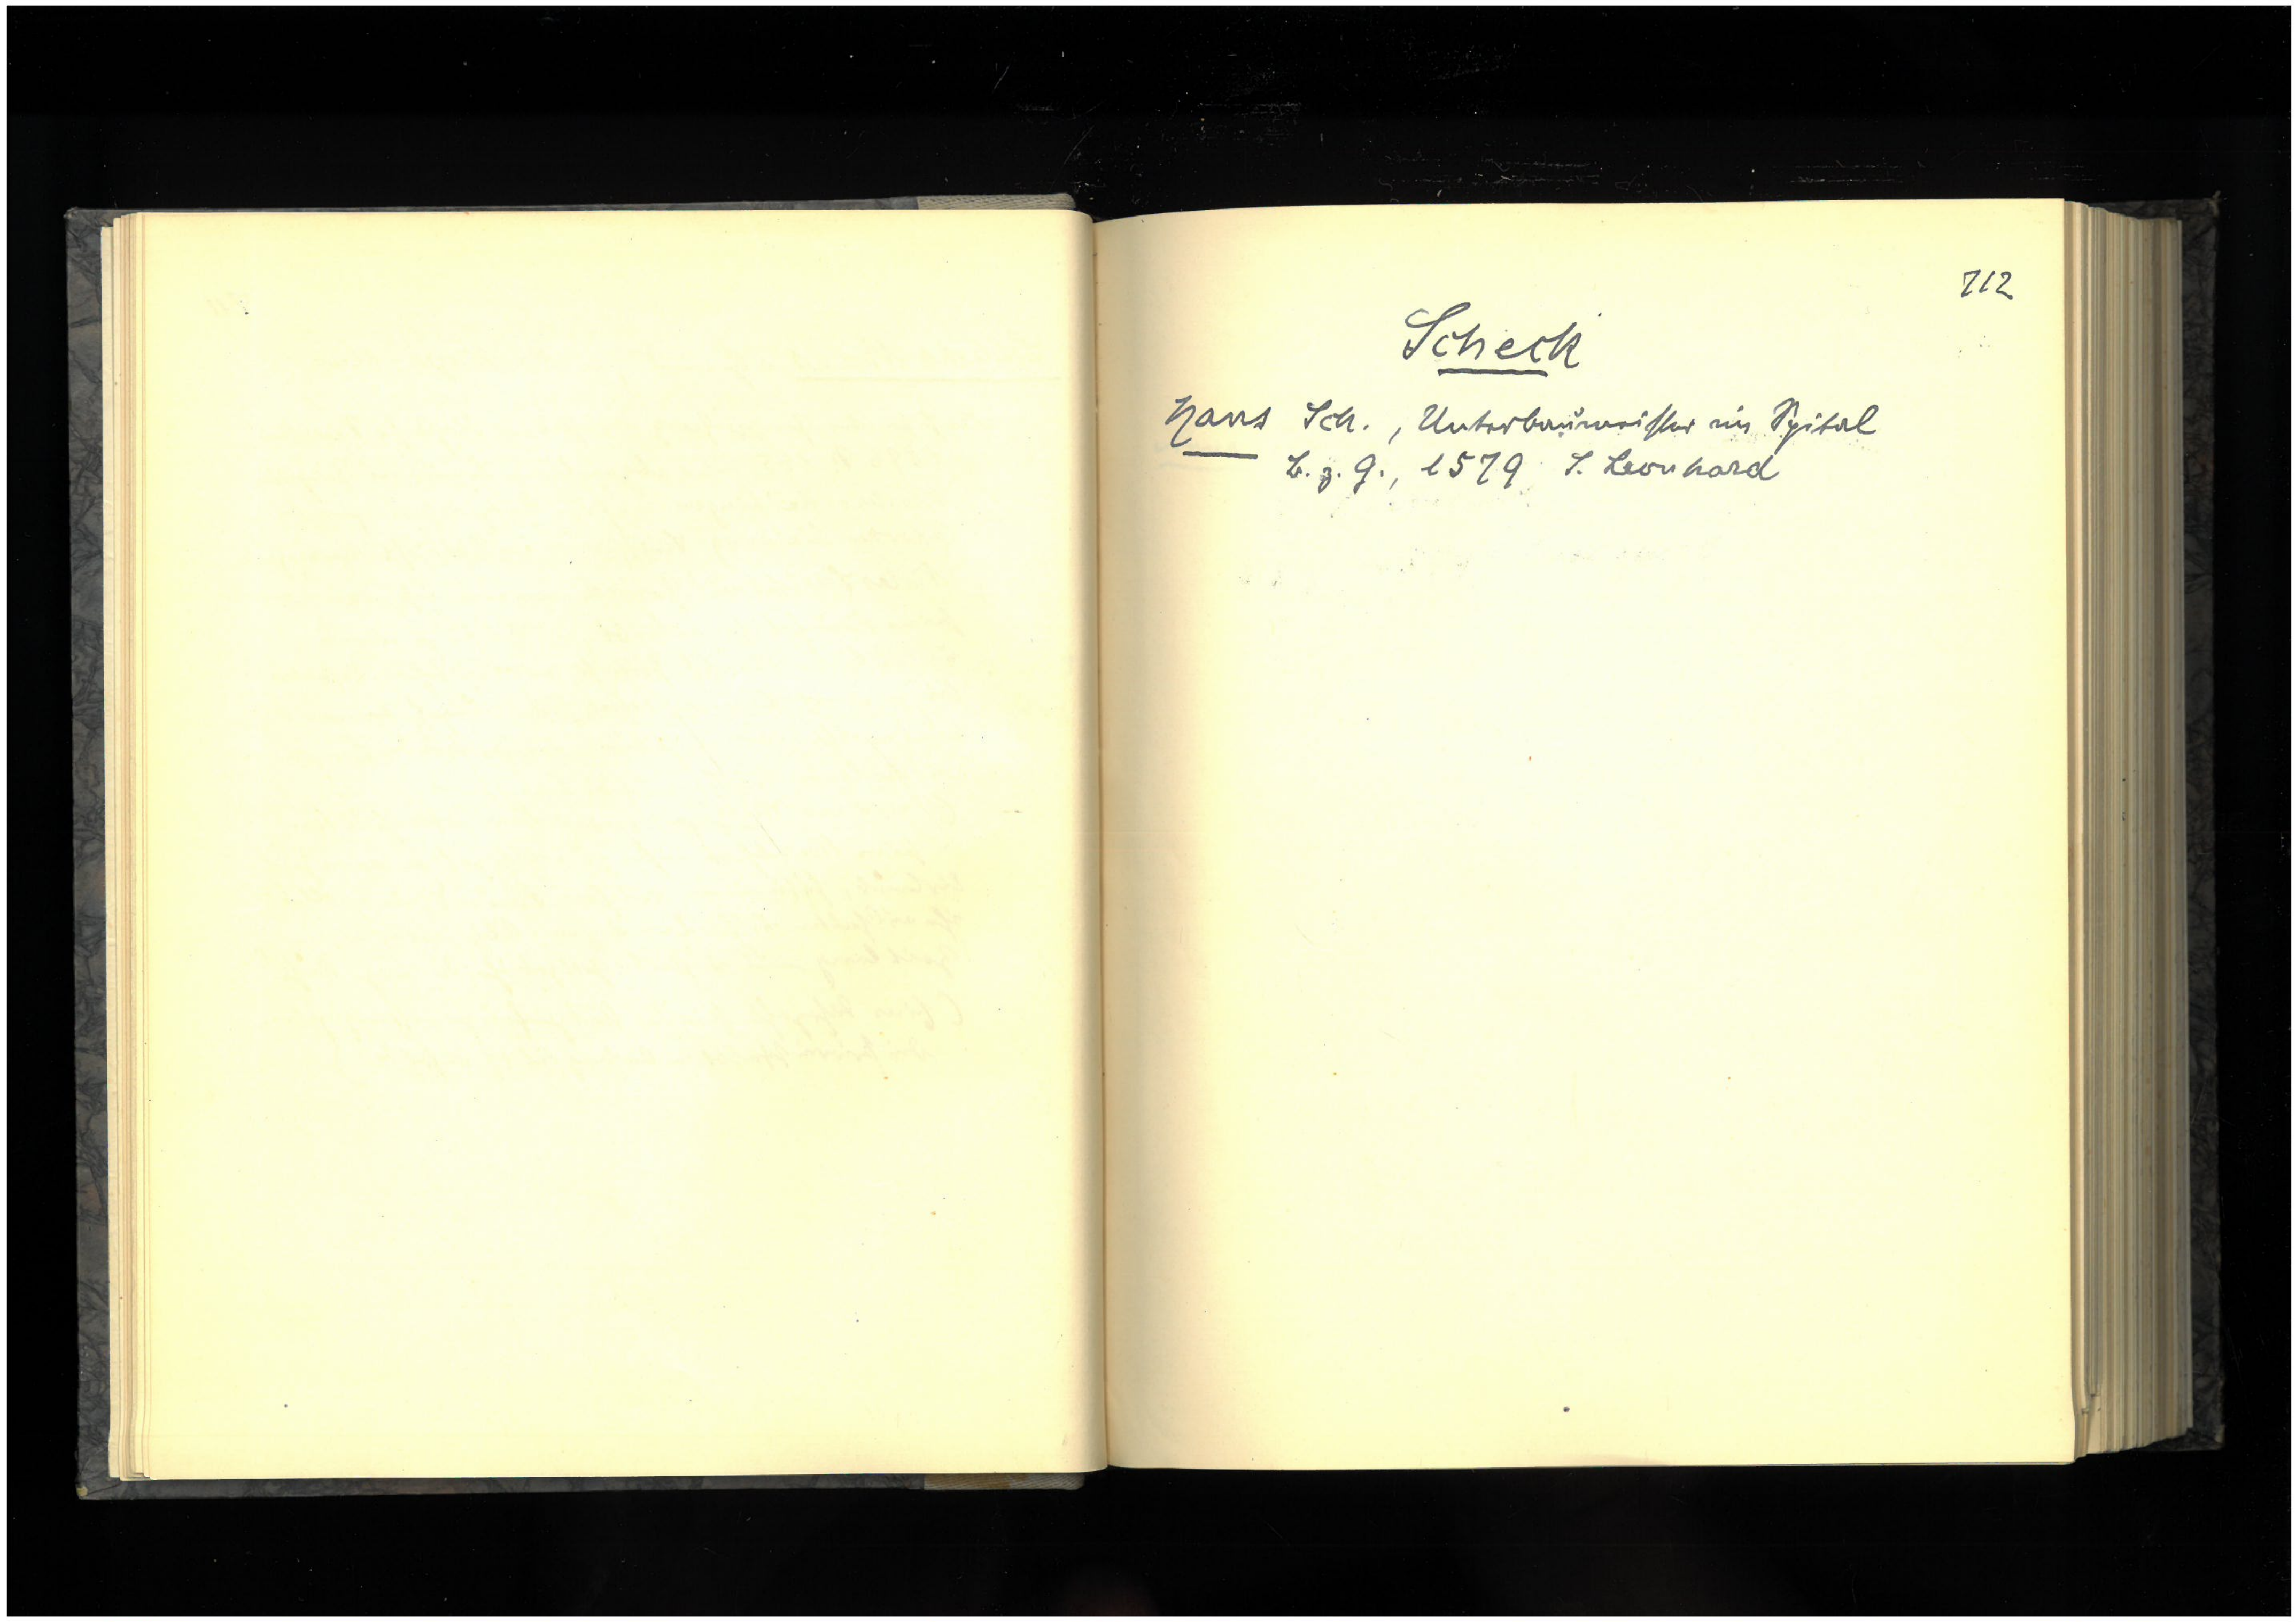 712
Scheck
Hans Sch., Unterbaumeister im Spital
b. z. G., 1579 S. Leonhard